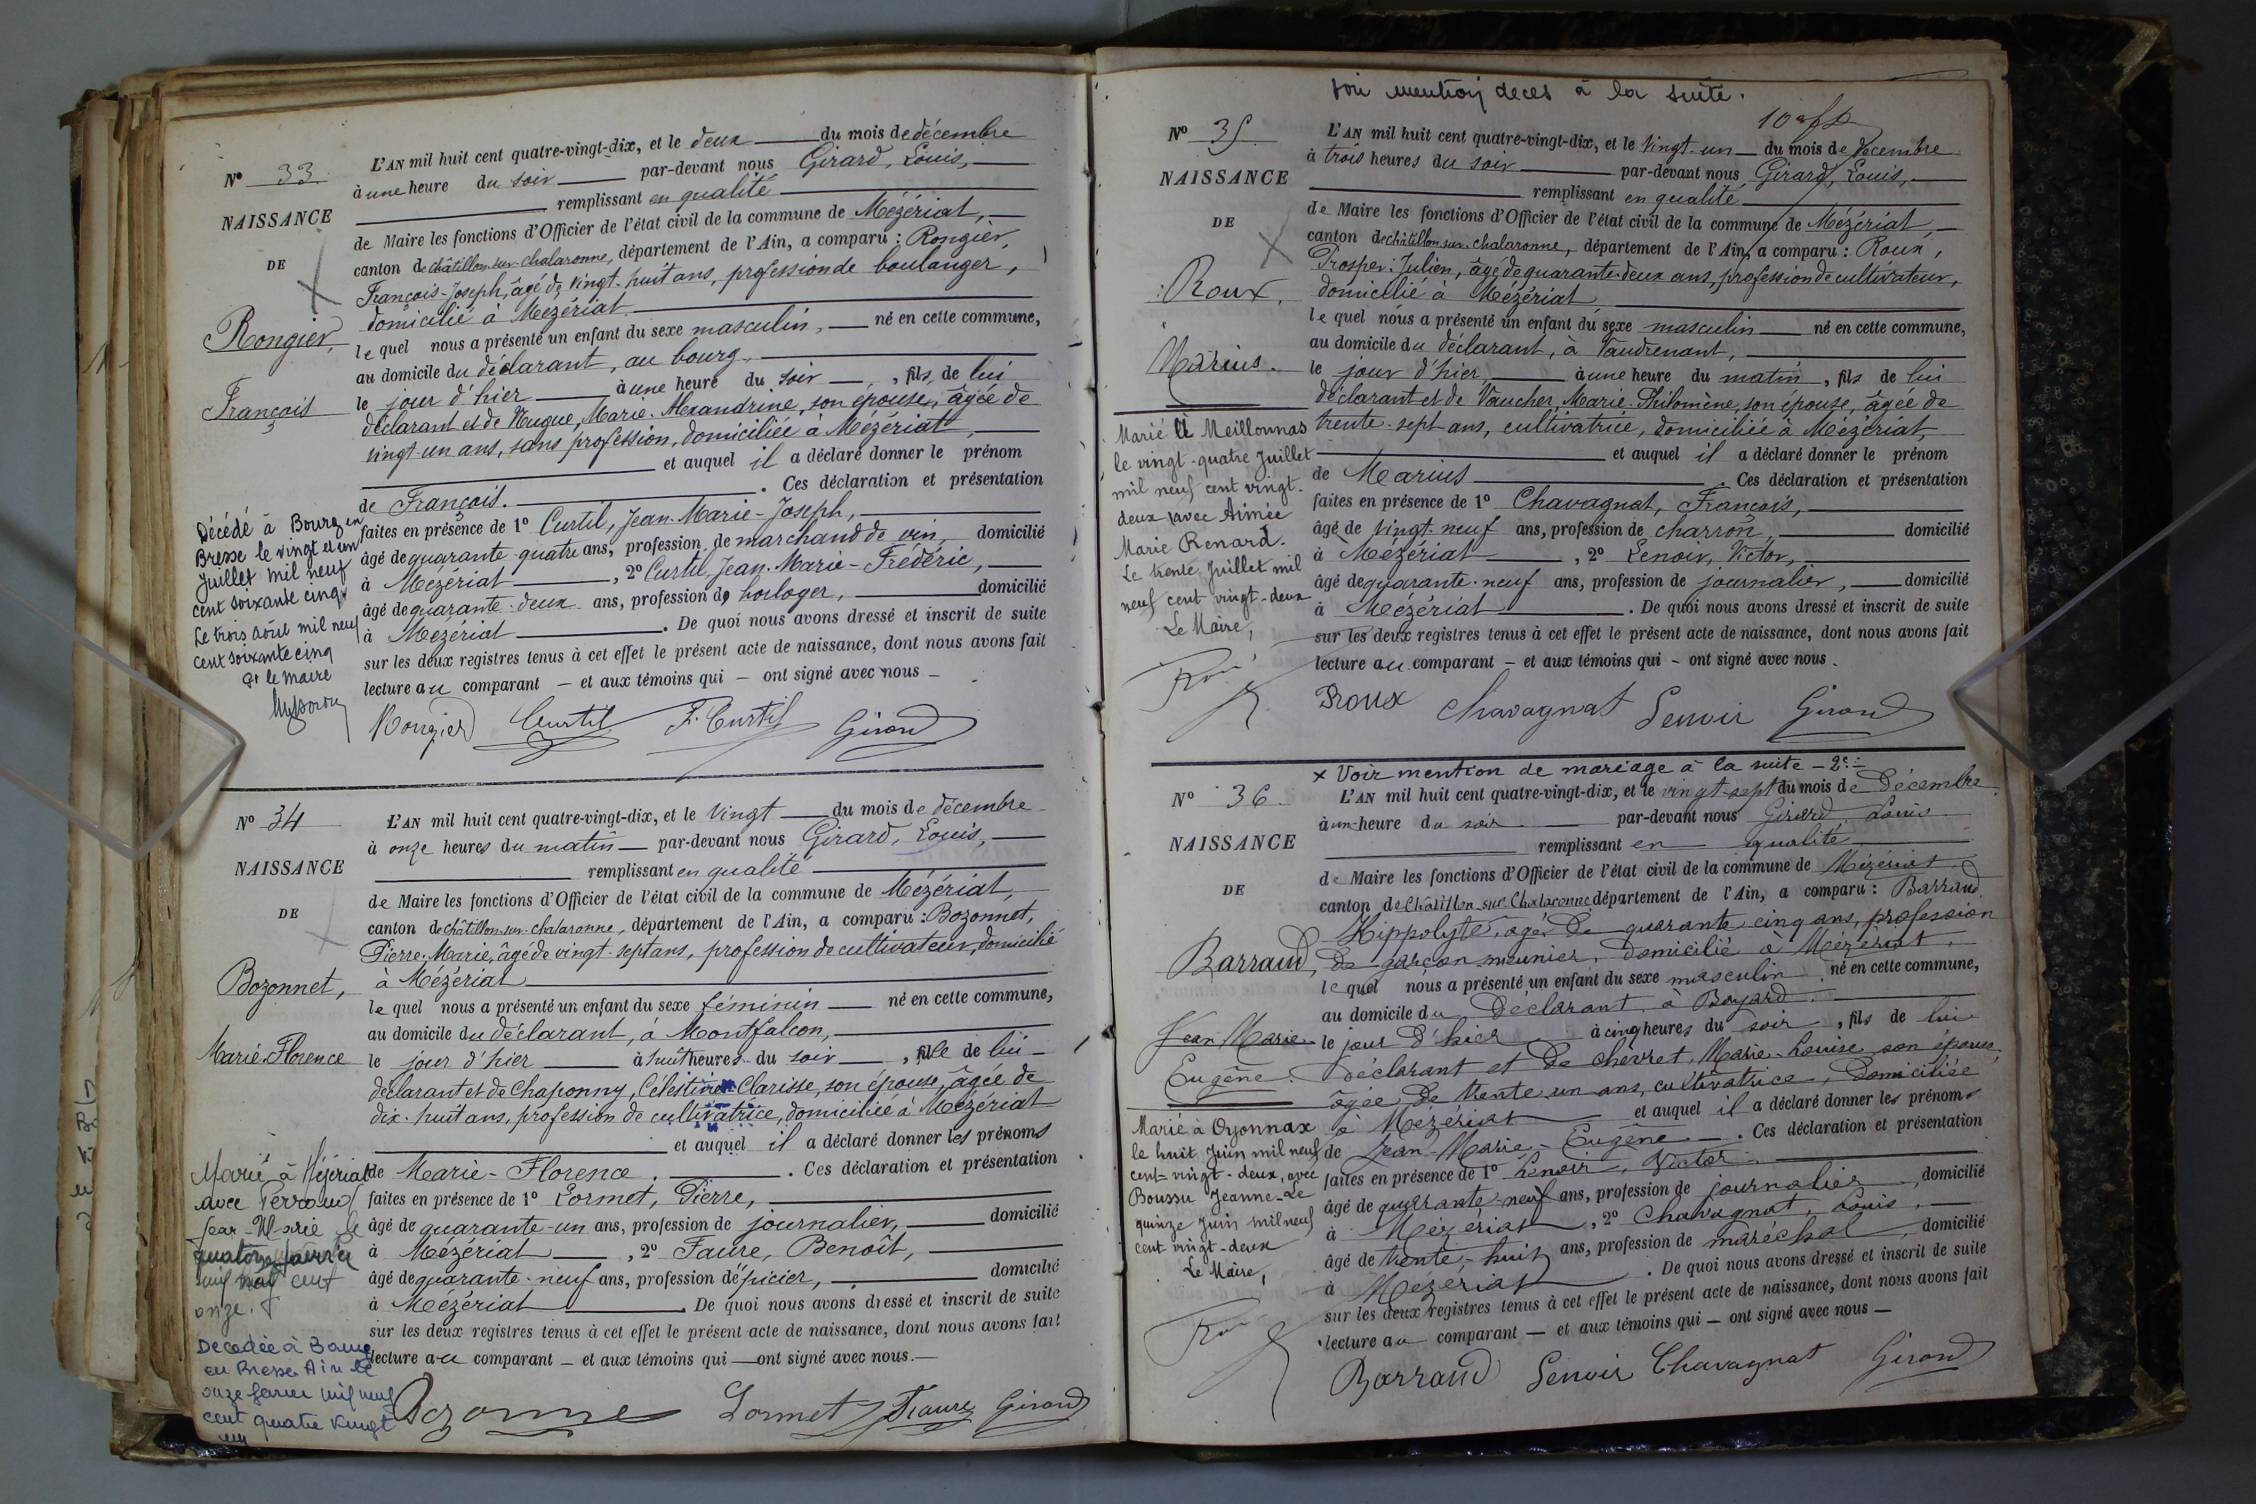 N° 33.
NAISSANCE
DE
Rongier,
François
L'AN mil huit cent quatre-vingt-dix, et le deux du mois de décembre
à une heure du soir par-devant nous Girard, Louis,
remplissant en qualité
de Maire les fonctions d'Officier de l'état civil de la commune de Mézériat,
canton de châtillon-sur-chalaronne, département de l'Ain, a comparu : Rongier,
François-Joseph, âgé de vingt-huit ans, profession de boulanger,
domicilié à Mézériat
le quel nous a présenté un enfant du sexe masculin, né en cette commune,
au domicile du déclarant, au bourg,
le jour d'hier à une heure du soir, fils de lui
déclarant et de Nugue, Marie-Alexandrine, son épouse, âgée de
vingt-un ans, sans profession, domiciliée à Mézériat,
et auquel il a déclaré donner le prénom
de François. Ces déclaration et présentation
faites en présence de 1° Curtil, Jean-Marie-Joseph,
âgé de quarante-quatre ans, profession de marchand de vin, domicilié
à Mézériat, 2° Curtil, Jean-Marie-Frédéric,
âgé de quarante-deux ans, profession d' horloger, domicilié
à Mézériat. De quoi nous avons dressé et inscrit de suite
sur les deux registres tenus à cet effet le présent acte de naissance, dont nous avons fait
lecture au comparant – et aux témoins qui – ont signé avec nous –
Rongier Curtil F. Curtil Girard
Décédé à Bourg en
Bresse le vingt et un
Juillet mil neuf
cent soixante cinq.
Le trois août mil neuf
cent soixante cinq
le Maire
N° 34
NAISSANCE
DE
Bozonnet,
Marie-Florence
L'AN mil huit cent quatre-vingt-dix, et le vingt du mois de décembre
à onze heures du matin par-devant nous Girard, Louis,
remplissant en qualité
de Maire les fonctions d'Officier de l'état civil de la commune de Mézériat,
canton de châtillon-sur-chalaronne, département de l'Ain, a comparu : Bozonnet,
Pierre-Marie, âgé de vingt-sept ans, profession de cultivateur, domicilié
à Mézériat
le quel nous a présenté un enfant du sexe féminin né en cette commune,
au domicile du déclarant, à Montfalcon,
le jour d'hier à huit heures du soir, fille de lui
déclarant et de Chaponny, Célestine Clarisse, son épouse, âgée de
dix-huit ans, profession de cultivatrice, domiciliée à Mézériat
et auquel il a déclaré donner les prénoms
de Marie-Florence. Ces déclaration et présentation
faites en présence de 1° Lormet, Pierre,
âgé de quarante-un ans, profession de journalier, domicilié
à Mézériat, 2° Faure, Benoît,
âgé de quarante-neuf ans, profession d'épicier, domicilié
à Mézériat. De quoi nous avons dressé et inscrit de suite
sur les deux registres tenus à cet effet le présent acte de naissance, dont nous avons fait
lecture au comparant – et aux témoins qui – ont signé avec nous.
Bozonnet Lormet Faure Girard
Marié à Mézériat
avec Perraud
Jean-Marie le
quatorze janvier
mil neuf cent
onze.
Décédée à Bourg
en Bresse Ain le
onze février mil neuf
cent quatre vingt
un
Voir mention décès à la suite.
N° 35
NAISSANCE
DE
Roux,
Marius.
L'AN mil huit cent quatre-vingt-dix, et le vingt-un du mois de décembre
à trois heures du soir par-devant nous Girard, Louis,
remplissant en qualité
de Maire les fonctions d'Officier de l'état civil de la commune de Mézériat,
canton de châtillon-sur-chalaronne, département de l'Ain, a comparu : Roux,
Prosper-Julien, âgé de quarante-deux ans, profession de cultivateur,
domicilié à Mézériat
le quel nous a présenté un enfant du sexe masculin né en cette commune,
au domicile du déclarant, à Vaudrenant,
le jour d'hier, à une heure du matin, fils de lui
déclarant et de Vaucher, Marie-Philomène, son épouse, âgée de
trente-sept ans, cultivatrice, domiciliée à Mézériat,
et auquel il a déclaré donner le prénom
de Marius. Ces déclaration et présentation
faites en présence de 1° Chavagnat, François,
âgé de vingt-neuf ans, profession de charron, domicilié
à Mézériat, 2° Lenoir, Victor,
âgé de quarante-neuf ans, profession de journalier, domicilié
à Mézériat. De quoi nous avons dressé et inscrit de suite
sur les deux registres tenus à cet effet le présent acte de naissance, dont nous avons fait
lecture au comparant – et aux témoins qui – ont signé avec nous.
Proux Chavagnat Lenoir Girard
Marié à Meillonnas
le vingt-quatre Juillet
mil neuf cent vingt-
deux avec Aimée
Marie Renard.
Le trente Juillet mil
neuf cent vingt-deux
Le Maire,
x Voir mention de mariage à la suite – 2e
N° 36
NAISSANCE
DE
Barraud,
Jean Marie
Eugène.
L'AN mil huit cent quatre-vingt-dix, et le vingt-sept du mois de Décembre
à un heure du soir par-devant nous Girard, Louis
remplissant en qualité
de Maire les fonctions d'Officier de l'état civil de la commune de Mézériat
canton de Châtillon-sur-Chalaronne département de l'Ain, a comparu : Barraud
Hippolyte, âgé de quarante cinq ans, profession
de garçon meunier, domicilié à Mézériat,
le quel nous a présenté un enfant du sexe masculin né en cette commune,
au domicile du Déclarant, à Boyard.
le jour d'hier à cinq heures du soir, fils de lui
déclarant et de Chevret, Marie-Louise son épouse,
âgée de trente un ans, cultivatrice, domiciliée
à Mézériat et auquel il a déclaré donner les prénoms
de Jean-Marie-Eugène. Ces déclaration et présentation
faites en présence de 1° Lenoir, Victor
âgé de quarante-neuf ans, profession de journalier, domicilié
à Mézériat, 2° Chavagnat, Louis,
âgé de trente-huit ans, profession de maréchal, domicilié
à Mézériat. De quoi nous avons dressé et inscrit de suite
sur les deux registres tenus à cet effet le présent acte de naissance, dont nous avons fait
lecture au comparant – et aux témoins qui – ont signé avec nous –
Barraud Lenoir Chavagnat Girard
Marié à Oyonnax
le huit Juin mil neuf
cent-vingt-deux, avec
Boussu Jeanne-Le
quinze Juin mil neuf
cent vingt-deux
Le Maire,